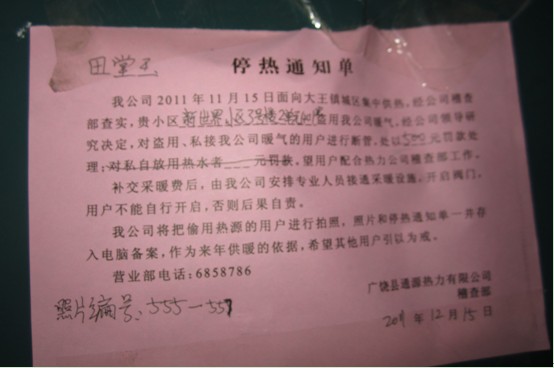 田堂
停热通知单
我公司2011年11月15日面向大王镇城区集中供热，经公司稽查
部查实，贵小区新世界小区3号楼2 盗用我公司暖气，经公司领导研
究决定，对盗用、私接我公司暖气的用户进行断管，处以500元罚款处
理；对私自放用热水者___元罚款，望用户配合热力公司稽查部工作。
补交采暖费后，由我公司安排专业人员接通采暖设施，开启阀门，
用户不能自行开启，否则后果自责。
我公司将把偷用热源的用户进行拍照，照片和停热通知单一并存
入电脑备案，作为来年供暖的依据，希望其他用户引以为戒。
营业部电话：6858786
广饶县通源热力有限公司
稽查部
照片编号：555—557
2011年12月15日